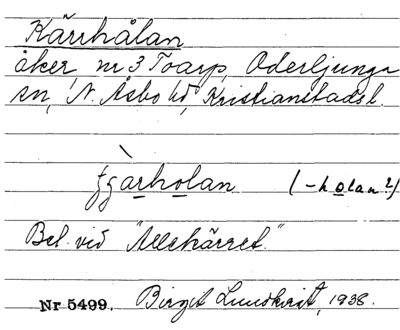 Kärrhålan
åker, nr 3 Toarp, Oderljunga
sn, N. Åsbo hd, Kristianstads l.
(-holan?)
Bel. vid "Allekärret."
Nr 5499. Birgit Lundkvist, 1938.